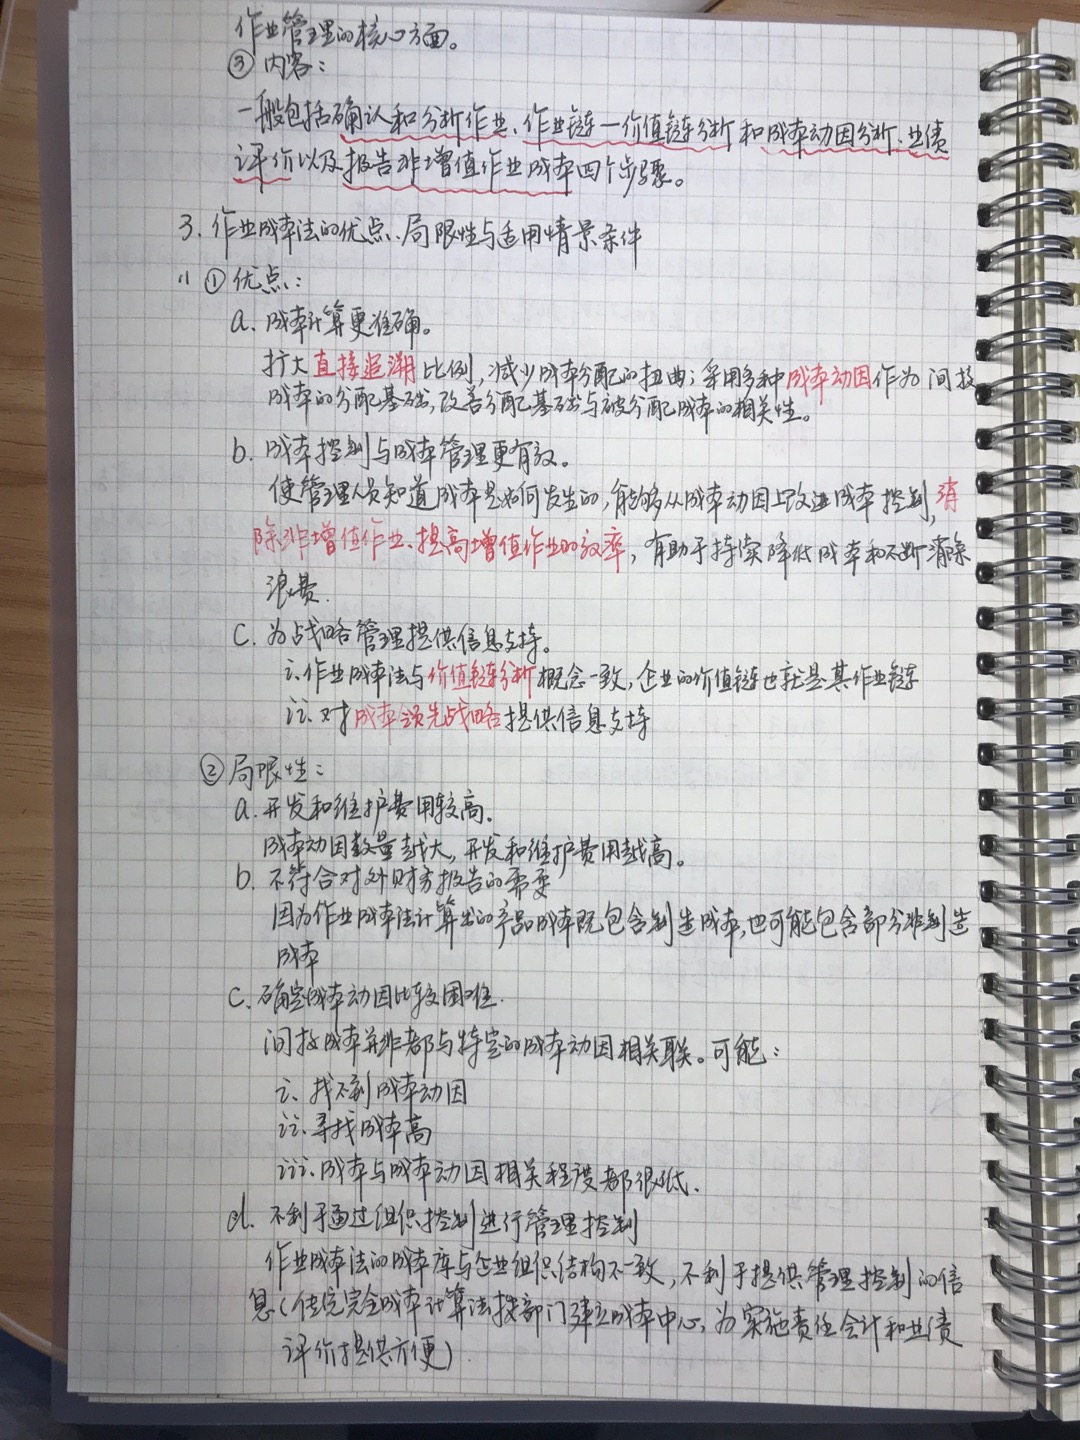 作业管理的核心方面。
③ 内容：
一般包括确认和分析作业、作业链—价值链分析和成本动因分析、业绩
评价以及报告非增值作业成本四个步骤。
3. 作业成本法的优点、局限性与适用情景条件
(1) ① 优点：
a. 成本计算更准确。
扩大直接追溯比例，减少成本分配的扭曲；采用多种成本动因作为间接
成本的分配基础，改善分配基础与被分配成本的相关性。
b. 成本控制与成本管理更有效。
使管理人员知道成本是如何发生的，能够从成本动因上改进成本控制，消
除非增值作业、提高增值作业的效率，有助于持续降低成本和不断消除
浪费.
c. 为战略管理提供信息支持。
i. 作业成本法与价值链分析概念一致，企业的价值链也就是其作业链
ii. 对成本领先战略提供信息支持
② 局限性：
a. 开发和维护费用较高.
成本动因数量越大，开发和维护费用越高。
b. 不符合对外财务报告的需要
因为作业成本法计算出的产品成本既包含制造成本，也可能包含部分非制造
成本
c. 确定成本动因比较困难.
间接成本并非都与特定的成本动因相关联。可能：
i. 找不到成本动因
ii. 寻找成本高
iii. 成本与成本动因相关程度都很低.
d. 不利于通过组织控制进行管理控制
作业成本法的成本库与企业组织结构不一致，不利于提供管理控制的信
息（传统完全成本计算法按部门建立成本中心，为实施责任会计和业绩
评价提供方便）